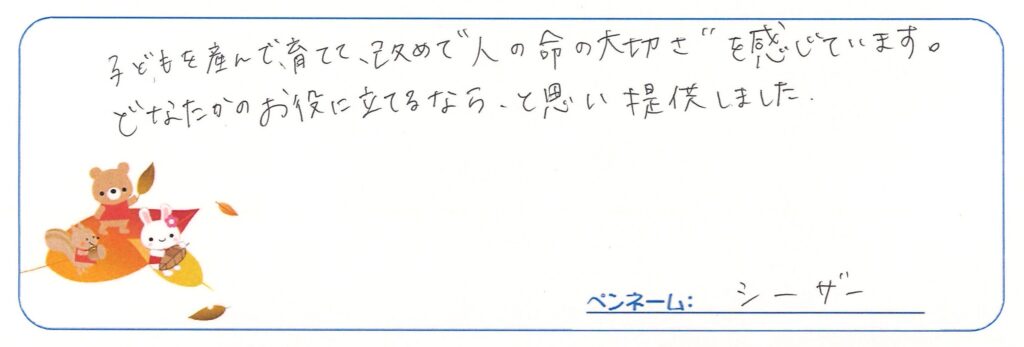 子どもを産んで、育てて、改めて"人の命の大切さ"を感じています。
どなたかのお役に立てるなら、と思い提供しました.
ペンネーム: シーザー